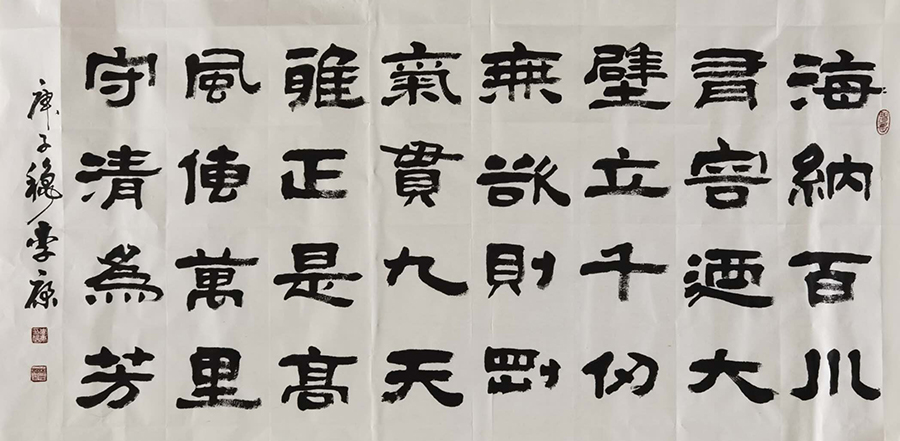 海納百川
有容迺大
壁立千仞
無欲則剛
氣貫九天
雅正是高
風傳萬里
守清為芳
庚子穐李